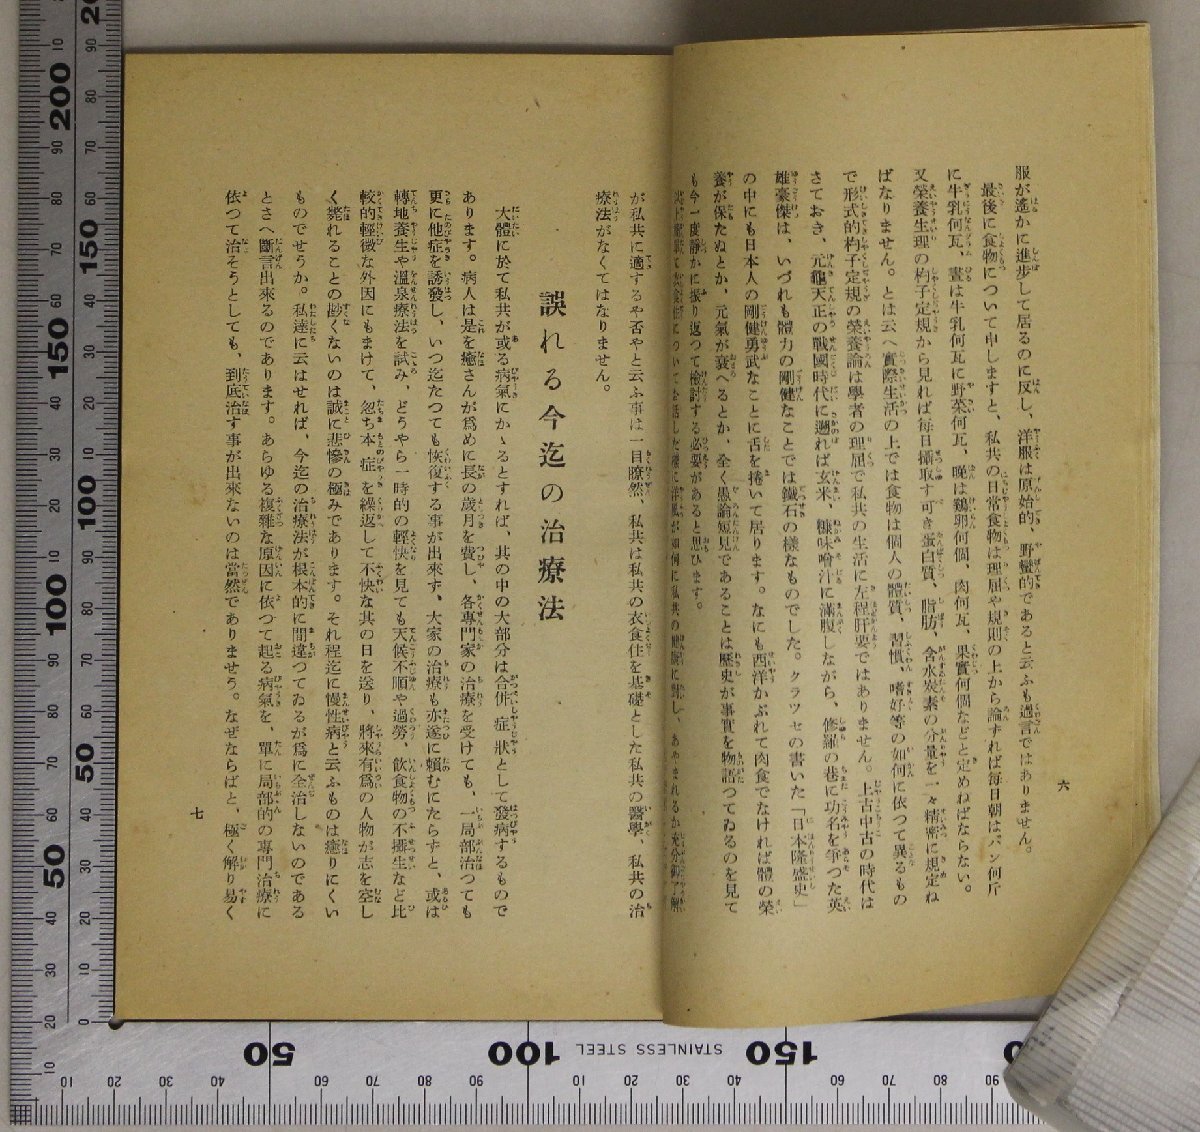 服が遙かに進步して居るのに反し、洋服は原始的、野蠻的であると云ふも過言ではありません。
最後に食物について申しますと、私共の日常食物は理屈や規則の上から論ずれば每日朝はパン何斤
に牛乳何瓦、晝は牛乳何瓦に野菜何瓦、晚は鷄卵何個、肉何瓦、果實何個などと定めねばならない。
又榮養生理の杓子定規から見れば每日攝取す可き蛋白質、脂肪、含水炭素の分量を一々精密に規定ね
ばなりません。とは云へ實際生活の上では食物は個人の體質、習慣、嗜好等の如何に依つて異るもの
で形式的杓子定規の榮養論は學者の理屈で私共の生活に左程肝要ではありません。上古中古の時代は
さておき、元龜天正の戰國時代に遡れば玄米、糠味噌汁に滿腹しながら、修羅の巷に功名を爭つた英
雄豪傑は、いづれも體力の剛健なことでは鐵石の樣なものでした。クラツセの書いた「日本隆盛史」
の中にも日本人の剛健勇武なことに舌を捲いて居ります。なにも西洋かぶれて肉食でなければ體の榮
養が保たぬとか、元氣が衰へるとか、全く愚論短見であることは歷史が事實を物語つてゐるのを見て
も今一度靜かに振り返つて檢討する必要があると思ひます。
六
が私共に適するや否やと云ふ事は一目瞭然、私共は私共の衣食住を基礎とした私共の醫學、私共の治
療法がなくてはなりません。
誤れる今迄の治療法
大體に於て私共が或る病氣にかゝるとすれば、其の中の大部分は合併症狀として發病するもので
あります。病人は是を癒さんが爲めに長の歲月を費し、各專門家の治療を受けても、一局部治つても
更に他症を誘發し、いつ迄たつても恢復する事が出來ず、大家の治療も亦遂に賴むにたらずと、或は
轉地養生や溫泉療法を試み、どうやら一時的の輕快を見ても天候不順や過勞、飮食物の不攝生など比
較的輕微な外因にもまけて、忽ち本症を繰返して不快な其の日を送り、將來有爲の人物が志を空し
く斃れることの尠くないのは誠に悲慘の極みであります。それ程迄に慢性病と云ふものは癒りにくい
ものでせうか。私達に云はせれば、今迄の治療法が根本的に間違つてゐるが爲に全治しないのである
とさへ斷言出來るのであります。あらゆる複雜な原因に依つて起る病氣を、單に局部的の專門治療に
依つて治そうとしても、到底治す事が出來ないのは當然でありませう。なぜならばと、極く解り易く
七
200
150
100
50
STAINLESS STEEL
50
100
150